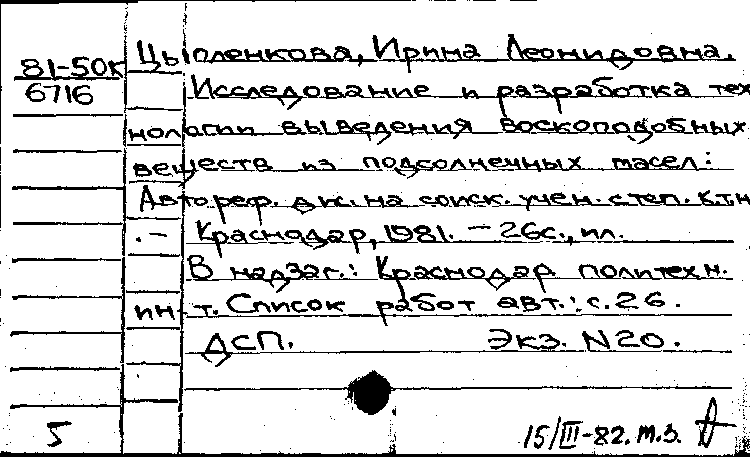 81-50к Цыпленкова, Ирина Леонидовна.
6716 Исследование и разработка тех
нологии выведения воскоподобных
веществ из подсолнечных масел:
Автореф. дис. на соиск. учен. степ. к.т.н
.- Краснодар, 1981. - 26с., ил.
В надзаг.: Краснодар. политехн.
ин-т. Список работ авт.: с.26.
ДСП. Экз. N20.
5 15/III-82. т.з.